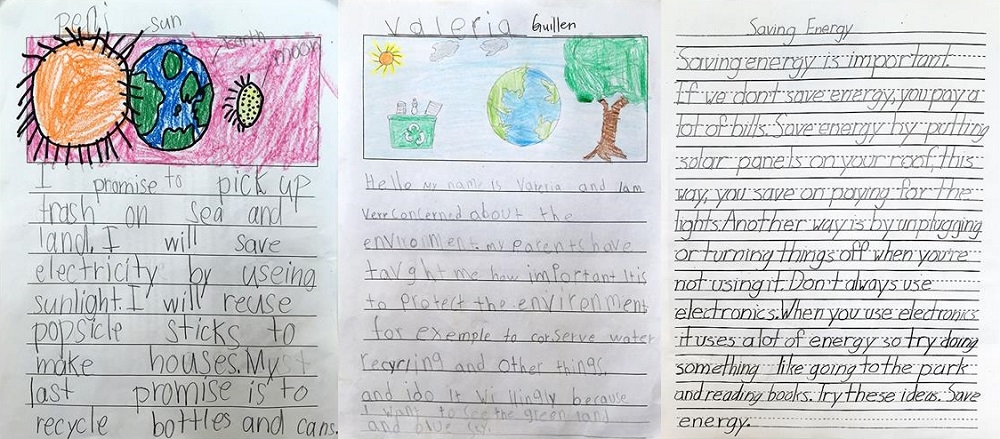 Reni
sun
Earth
moon
I promise to pick up
trash on sea and
land. I will save
electricity by useing
sunlight. I will reuse
popsicle sticks to
make houses. My
last promise is to
recycle bottles and cans.
Valeria Guillen
Hello my name is Valeria and I am
very concerned about the
environment. my parents have
taught me how important it is
to protect the environment
for exemple to conserve water
recycling and other things,
and I do it willingly because
I want to see the green land
and blue sky.
Saving Energy
Saving energy is important.
If we don't save energy, you pay a
lot of bills. Save energy by putting
solar panels on your roof, this
way, you save on paying for the
lights. Another way is by unplugging
or turning things off when you're
not using it. Don't always use
electronics. When you use electronics
it uses a lot of energy so try doing
something like going to the park
and reading books. Try these ideas. Save
energy.